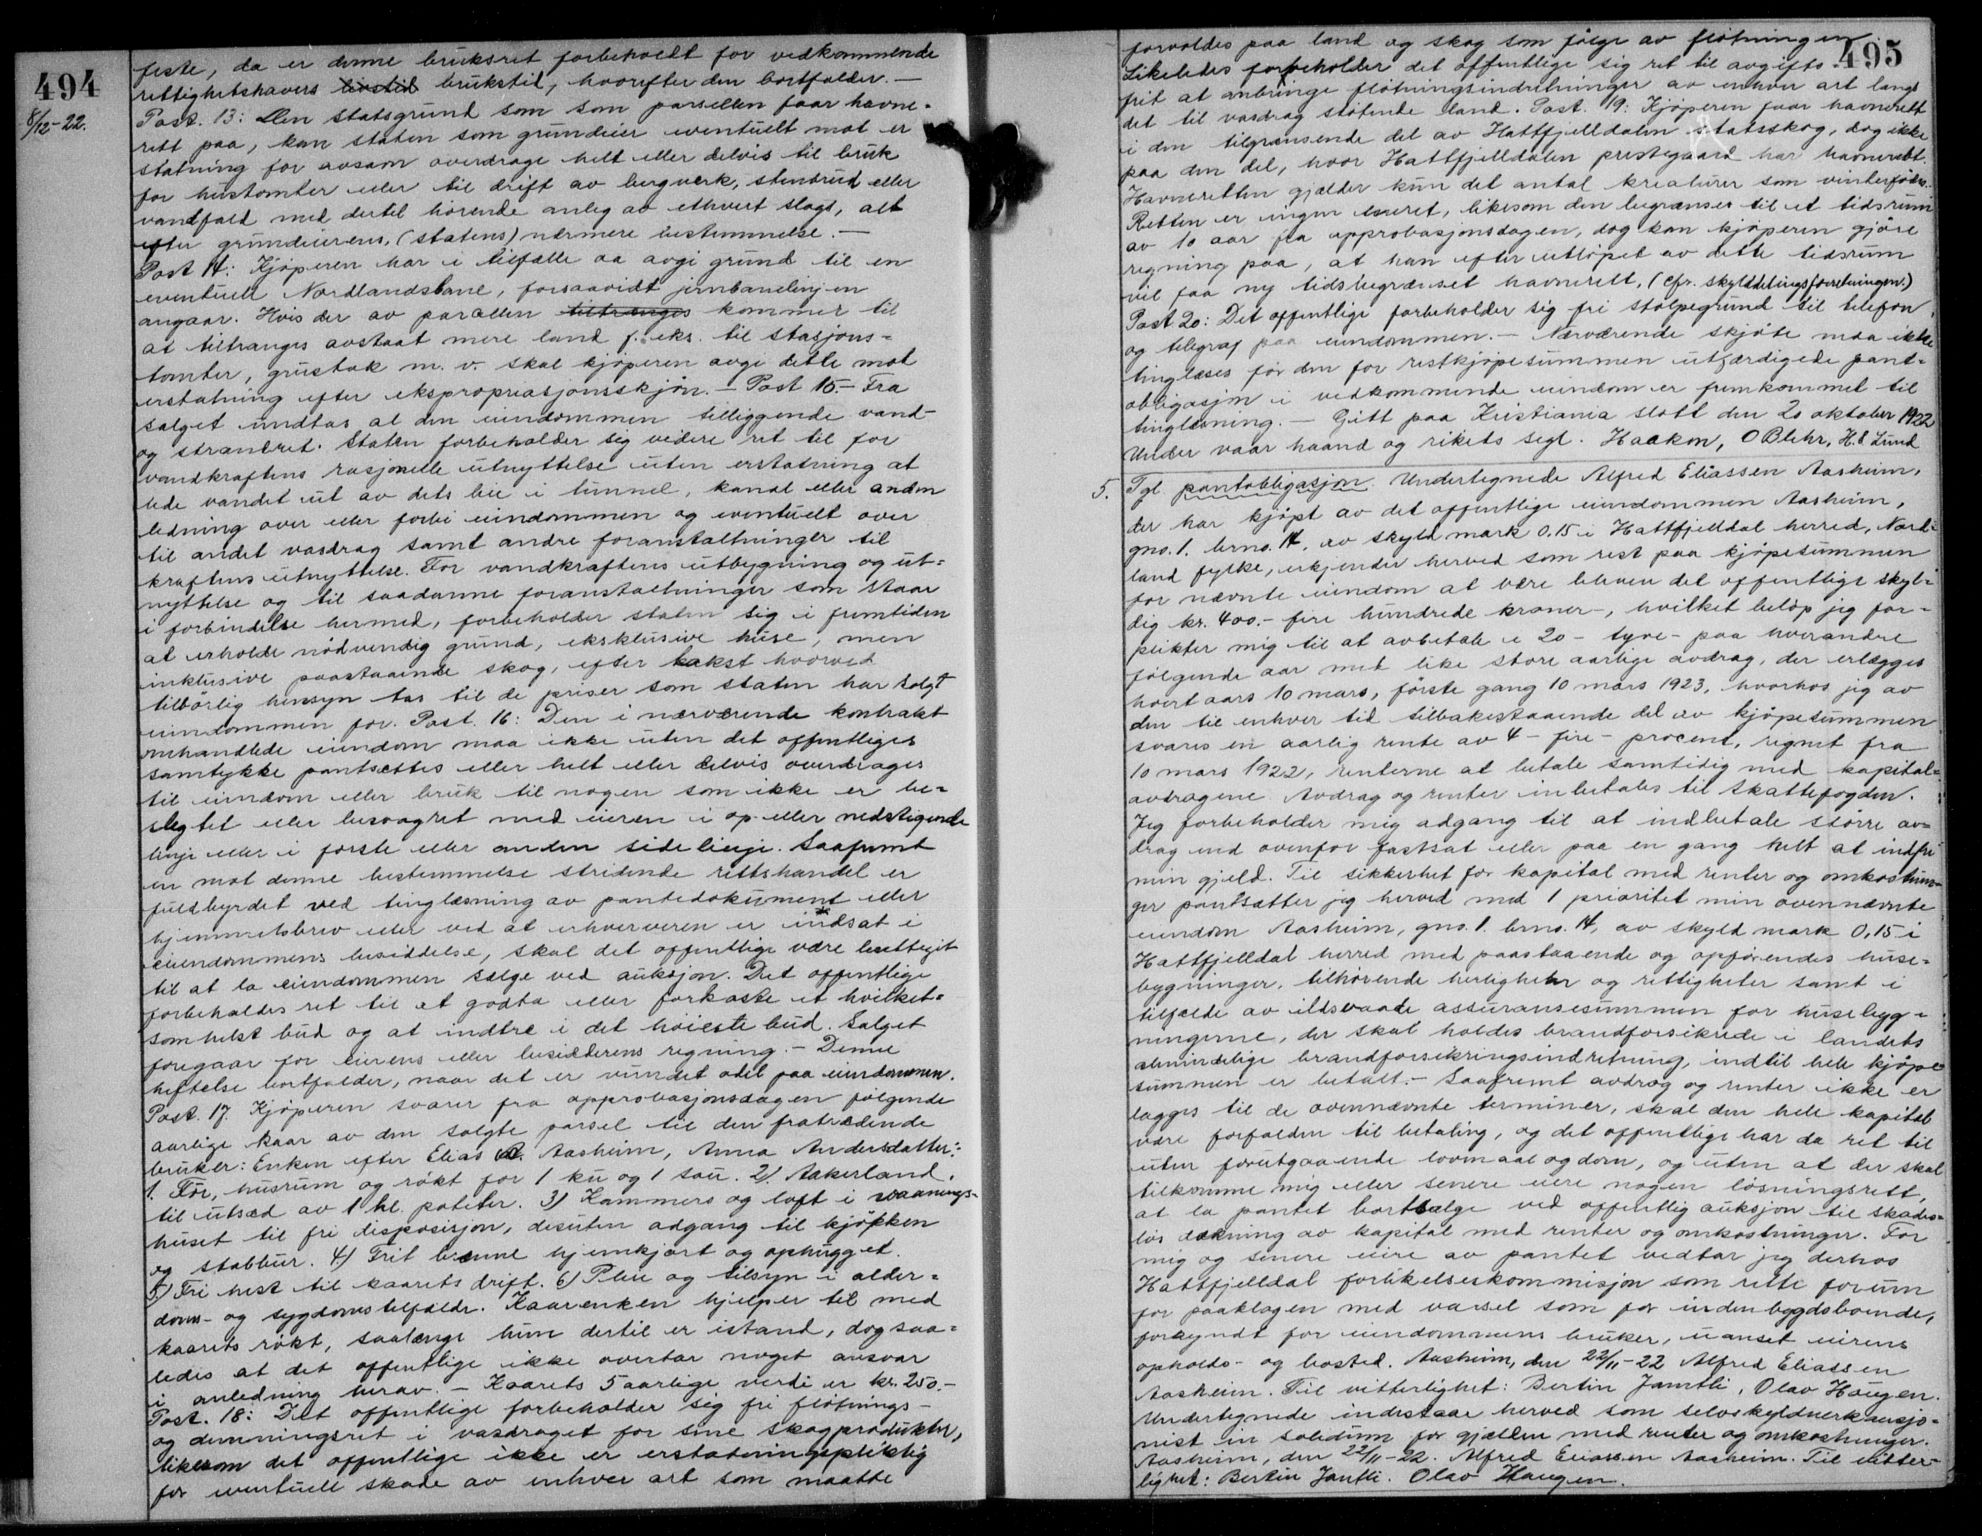 494
8/12-22.
feste, da er denne bruksret forbeholdt for vedkommende
rettighetshavers livstid brukstid, hvorefter den bortfalder. —
Post. 13: Den statsgrund som som parsellen faar havne-
rett paa, kan staten som grundeier eventuelt mot er
statning for avsavn overdrage helt eller delvis til bruk
for hustomter eller til drift av bergverk, stenbrud eller
vandfald med dertil hörende anleg av ethvert slags, alt
efter grundeierens, (statens) nærmere bestemmelse. —
Post 14: Kjöperen har i tilfælle aa avgi grund til en
eventuell Nordlandsbane, forsaavidt jernbanelinjen
angaar. Hvis der av parsellen tiltrænges kommer til
at tiltranges avstaat mere land f. eks. til stasjons-
tomter, grustak m. v. skal kjöperen avgi dette mot
erstatning efter ekspropriasjonsskjön. — Post 15. — Fra
salget undtas al den eiendommen tilliggende vand-
og strandret. Staten forbeholder sig videre ret til for
vandkraftens rasjonelle utnyttelse uten erstatning at
lede vandet ut av dets leie i tunnel, kanal eller anden
ledning over eller forbi eiendommen og eventuelt over
til andet vasdrag samt andre foranstaltninger til
kraftens utnyttelse. For vandkraftens utbygning og ut-
nyttelse og til saadanne foranstaltninger som staar
i forbindelse hermed, forbeholder staten sig i fremtiden
at erholde nödvendig grund, eksklusive huse, men
inklusive paastaaende skog, efter takst hvorved
tilbörlig hensyn tas til de priser som staten har solgt
eiendommen for. Post. 16: Den i nærværende kontrakt
omhandlede eiendom maa ikke uten det offentliges
samtykke pantsettes eller helt eller delvis overdrages
til eiendom eller bruk til nogen som ikke er be-
slegtet eller besvogret med eieren i op eller nedstigende
linje eller i förste eller anden sidelinje. Saafremt
en mot denne bestemmelse stridende rettshandel er
fuldbyrdet ved tinglæsning av pantedokument eller
hjemmelsbrev eller ved at erhververen er indsat i
eiendommens besiddelse, skal det offentlige være berettiget
til at la eiendommen sælge ved auksjon. Det offentlige
forbeholdes ret til at godta eller forkaste et hvilket-
somhelst bud og at indtre i det höieste bud. Salget
foregaar for eierens eller besidderens regning. — Denne
heftelse bortfalder, naar det er vundet odel paa eiendommen.
Post. 17. Kjöperen svarer fra approbasjonsdagen fölgende
aarlige kaar av den solgte parsel til den fratrædende
bruker: Enken efter Elias A. Aasheim, Anna Andersdatter:
1. Fôr, husrum og rökt for 1 ku og 1 sau. 2) Aakerland,
til utsæd av 1 hl. poteter. 3) Kammers og loft i vaanings-
huset til fri disposisjon, desuten adgang til kjökken
og stabbur. 4) Frit brænne hjemkjört og ophugget.
5) Fri hest til kaarets drift. 6) Pleie og tilsyn i alder-
doms- og sygdomstilfælde. Kaarenken hjelper til med
kaarets rökt, saalænge hun dertil er istand, dog saa-
ledes at det offentlige ikke overtar noget ansvar
i anledning herav. — Kaarets 5 aarlige verdi er kr. 250.-
Post. 18: Det offentlige forbeholder sig fri flötnings-
og demningsret i vasdraget for sine skogprodukter,
likesom det offentlige ikke er erstatningspliktig
for eventuell skade av enhver art som maatte
495
forvoldes paa land og skog som fölge av flötningen
Likeledes forbeholder det offentlige sig ret til avgifts-
frit at anbringe flötningsindretninger av enhver art langs
det til vasdrag stötende land. Post. 19: Kjöperen faar havnerett
i den tilgrænsende del av Hattfjelldalen statsskog, dog ikke
paa den del, hvor Hattfjelldalen prestegaard har havnerett.
Havneretten gjælder kun det antal kreaturer som vinterfödes.
Retten er ingen eneret, likesom den begrænses til et tidsrum
av 10 aar fra approbasjonsdagen, dog kan kjöperen gjöre
regning paa, at han efter utlöpet av dette tidsrum
vil faa ny tidsbegrænset havnerett, (cfr. skylddelingsforretningen.)
Post 20: Det offentlige forbeholder sig fri stolpegrund til telefon
og telegraf paa eiendommen. — Nærværende skjöte maa ikke
tinglæses för den for restkjöpesummen utfærdigede pant-
obligasjon i vedkommende eiendom er fremkommet til
tinglæsning. — Gitt paa Kristiania slott den 20 oktober 1922
Under vaar haand og rikets segl. Haakon, O Blehr, H. E. Lund
5. Tgl. pantobligasjon. Undertegnede Alfred Eliassen Aasheim,
der har kjöpt av det offentlige eiendommen Aasheim,
gno. 1. brno. 14, av skyld mark 0.15 i Hattfjelldal herred, Nord-
land fylke, erkjender herved som rest paa kjöpesummen
for nævnte eiendom at være bleven det offentlige skyl-
dig kr. 400.- fire hundrede kroner -, hvilket belöp jeg for-
plikter mig til at avbetale i 20 - tyve - paa hverandre
fölgende aar med like store aarlige avdrag, der erlægges
hvert aars 10 mars, förste gang 10 mars 1923, hvorhos jeg av
den til enhver tid tilbakestaaende del av kjöpesummen
svarer en aarlig rente av 4 - fire - procent, regnet fra
10 mars 1922, renterne at betale samtidig med kapital-
avdragene. Avdrag og renter inbetales til Skattefogden.
Jeg forbeholder mig adgang til at indbetale större av-
drag end ovenfor fastsat eller paa en gang helt at indfri
min gjeld. Til sikkerhet for kapital med renter og omkostnin-
ger pantsætter jeg herved med 1 prioritet min ovennævnte
eiendom Aasheim, gno. 1. brno. 14, av skyld mark 0,15 i
Hattfjelldal herred med paastaaende og opförendes huse-
bygninger, tilhörende herligheter og rettigheter samt i
tilfælde av ildsvaade assuransesummen for husebyg-
ningerne, der skal holdes brandforsikrede i landets
almindelige brandforsikringsindretning, indtil hele kjöpe
summen er betalt. - Saafremt avdrag og renter ikke er
lagges til de ovennævnte terminer, skal den hele kapital
være forfalden til betaling, og det offentlige har da ret til
uten forutgaaende lovmaal og dom, og uten at der skal
tilkomme mig eller senere eiere nogen lösningsrett,
at la pantet bortsælge ved offentlig auksjon til skades-
lös dækning av kapital med renter og omkostninger. For
mig og senere eiere av pantet vedtar jeg derhos
Hattfjelldal forlikelseskommisjon som rette forum
for paaklagen med varsel som for indenbygdsboende,
forkyndt for eiendommens bruker, uanset eierens
opholds- og bosted. Aasheim, den 22/11-22 Alfred Eliassen
Aasheim. Til vitterlighet: Bertin Jamtli, Olav Haugen.
Undertegnede indestaar herved som selvskyldnerkausjo-
nist in solidum for gjælden med renter og omkostninger.
Aasheim, den 22/11-22. Alfred Eliassen Aasheim. Til vitter-
lighet: Bertin Jamtli. Olav Haugen.